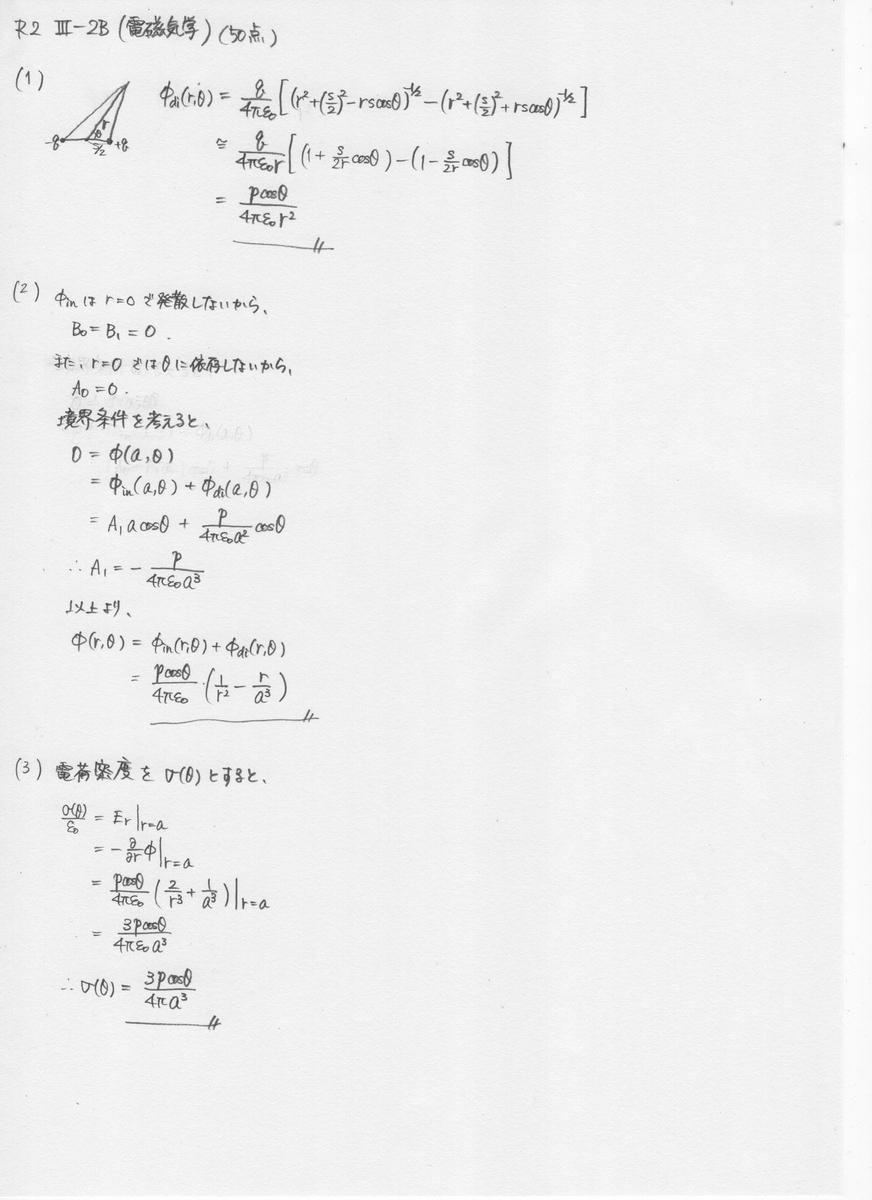 R2 III-2B (電磁気学) (50点)
(1)
-q θ r s/2 +q
φdi(r,θ) = q/4πε₀ [(r²+(s/2)²-rscosθ)^-1/2 - (r²+(s/2)²+rscosθ)^-1/2]
≅ q/4πε₀r [(1+s/2r cosθ)-(1-s/2r cosθ)]
= pcosθ/4πε₀r²
(2) φin は r=0 で発散しないから、
B₀=B₁=0.
また、r=0 では θに依存しないから、
A₀=0.
境界条件を考えると、
0 = φ(a,θ)
= φin(a,θ) + φdi(a,θ)
= A₁acosθ + p/4πε₀a² cosθ
∴ A₁ = - p/4πε₀a³
以上より、
φ(r,θ) = φin(r,θ) + φdi(r,θ)
= pcosθ/4πε₀ · (1/r² - r/a³)
(3) 電荷密度を σ(θ) とすると、
σ(θ)/ε₀ = Er|r=a
= -∂/∂r φ|r=a
= pcosθ/4πε₀ (2/r³ + 1/a³)|r=a
= 3pcosθ/4πε₀a³
∴ σ(θ) = 3pcosθ/4πa³